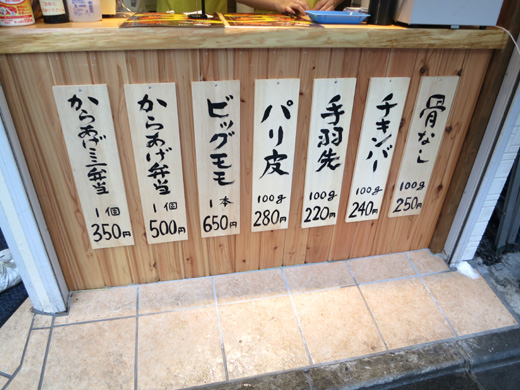 からあげミニ弁当
1個
350円
からあげ弁当
1個
500円
ビッグモモ
1本
650円
パリ皮
100g
280円
手羽先
100g
220円
チキンバー
100g
240円
骨なし
100g
250円